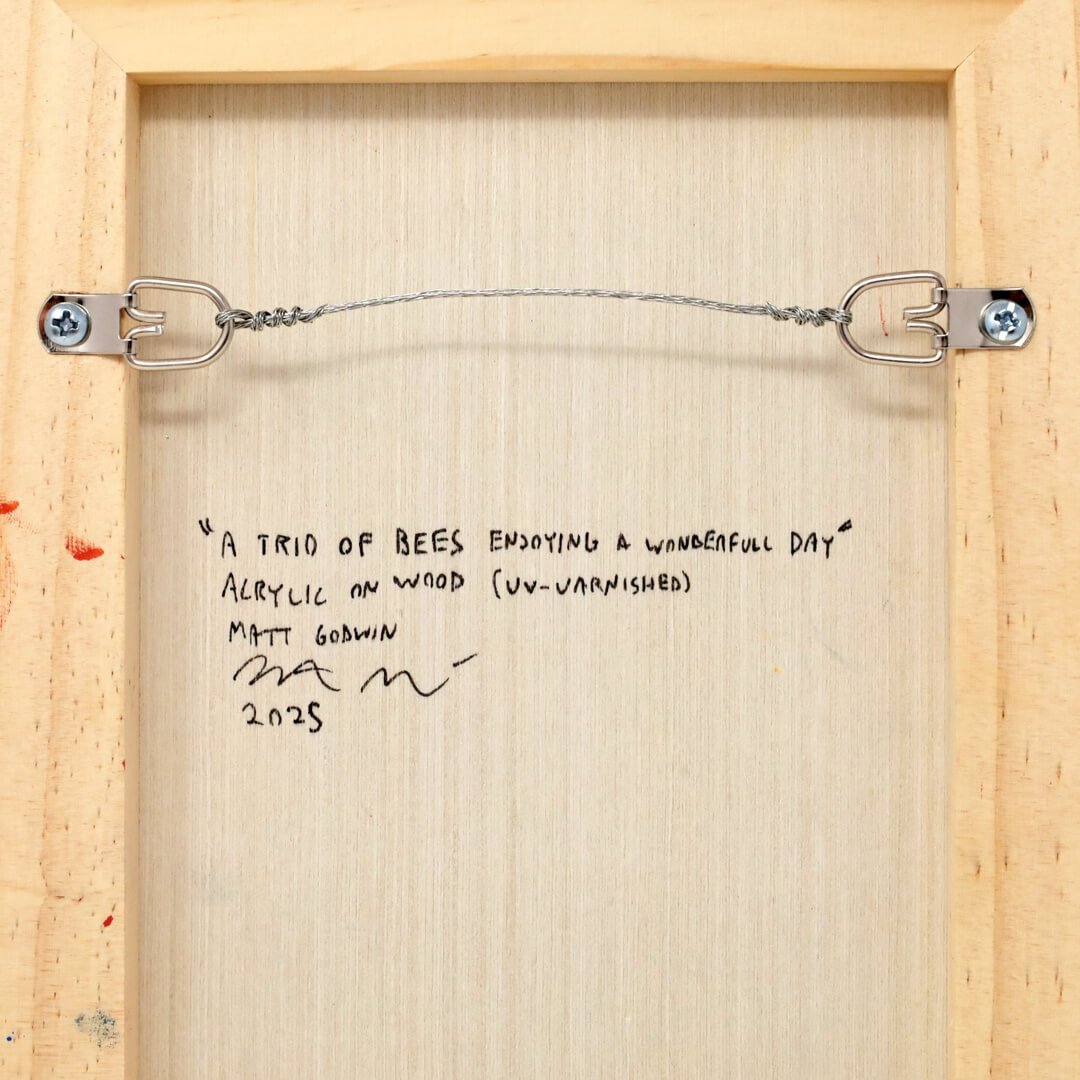 "A TRIO OF BEES ENJOYING A WONDERFULL DAY"
ACRYLIC ON WOOD (UV-VARNISHED)
MATT GODWIN
2025